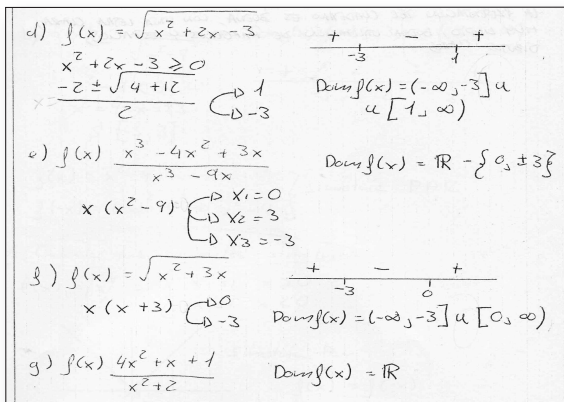 d) f(x) = √(x² + 2x - 3)
+ - +
-3 1
x² + 2x - 3 ≥ 0
(-2 ± √(4 + 12))/2 → 1 → -3
Dom f(x) = (-∞, -3] u
u [1, ∞)
e) f(x) (x³ - 4x² + 3x)/(x³ - 9x)
Dom f(x) = ℝ - {0, ±3}
x (x² - 9) → X1 = 0
→ X2 = 3
→ X3 = -3
f) f(x) = √(x² + 3x)
+ - +
-3 0
x (x + 3) → 0 → -3
Dom f(x) = (-∞, -3] u [0, ∞)
g) f(x) (4x² + x + 1)/(x² + 2)
Dom f(x) = ℝ